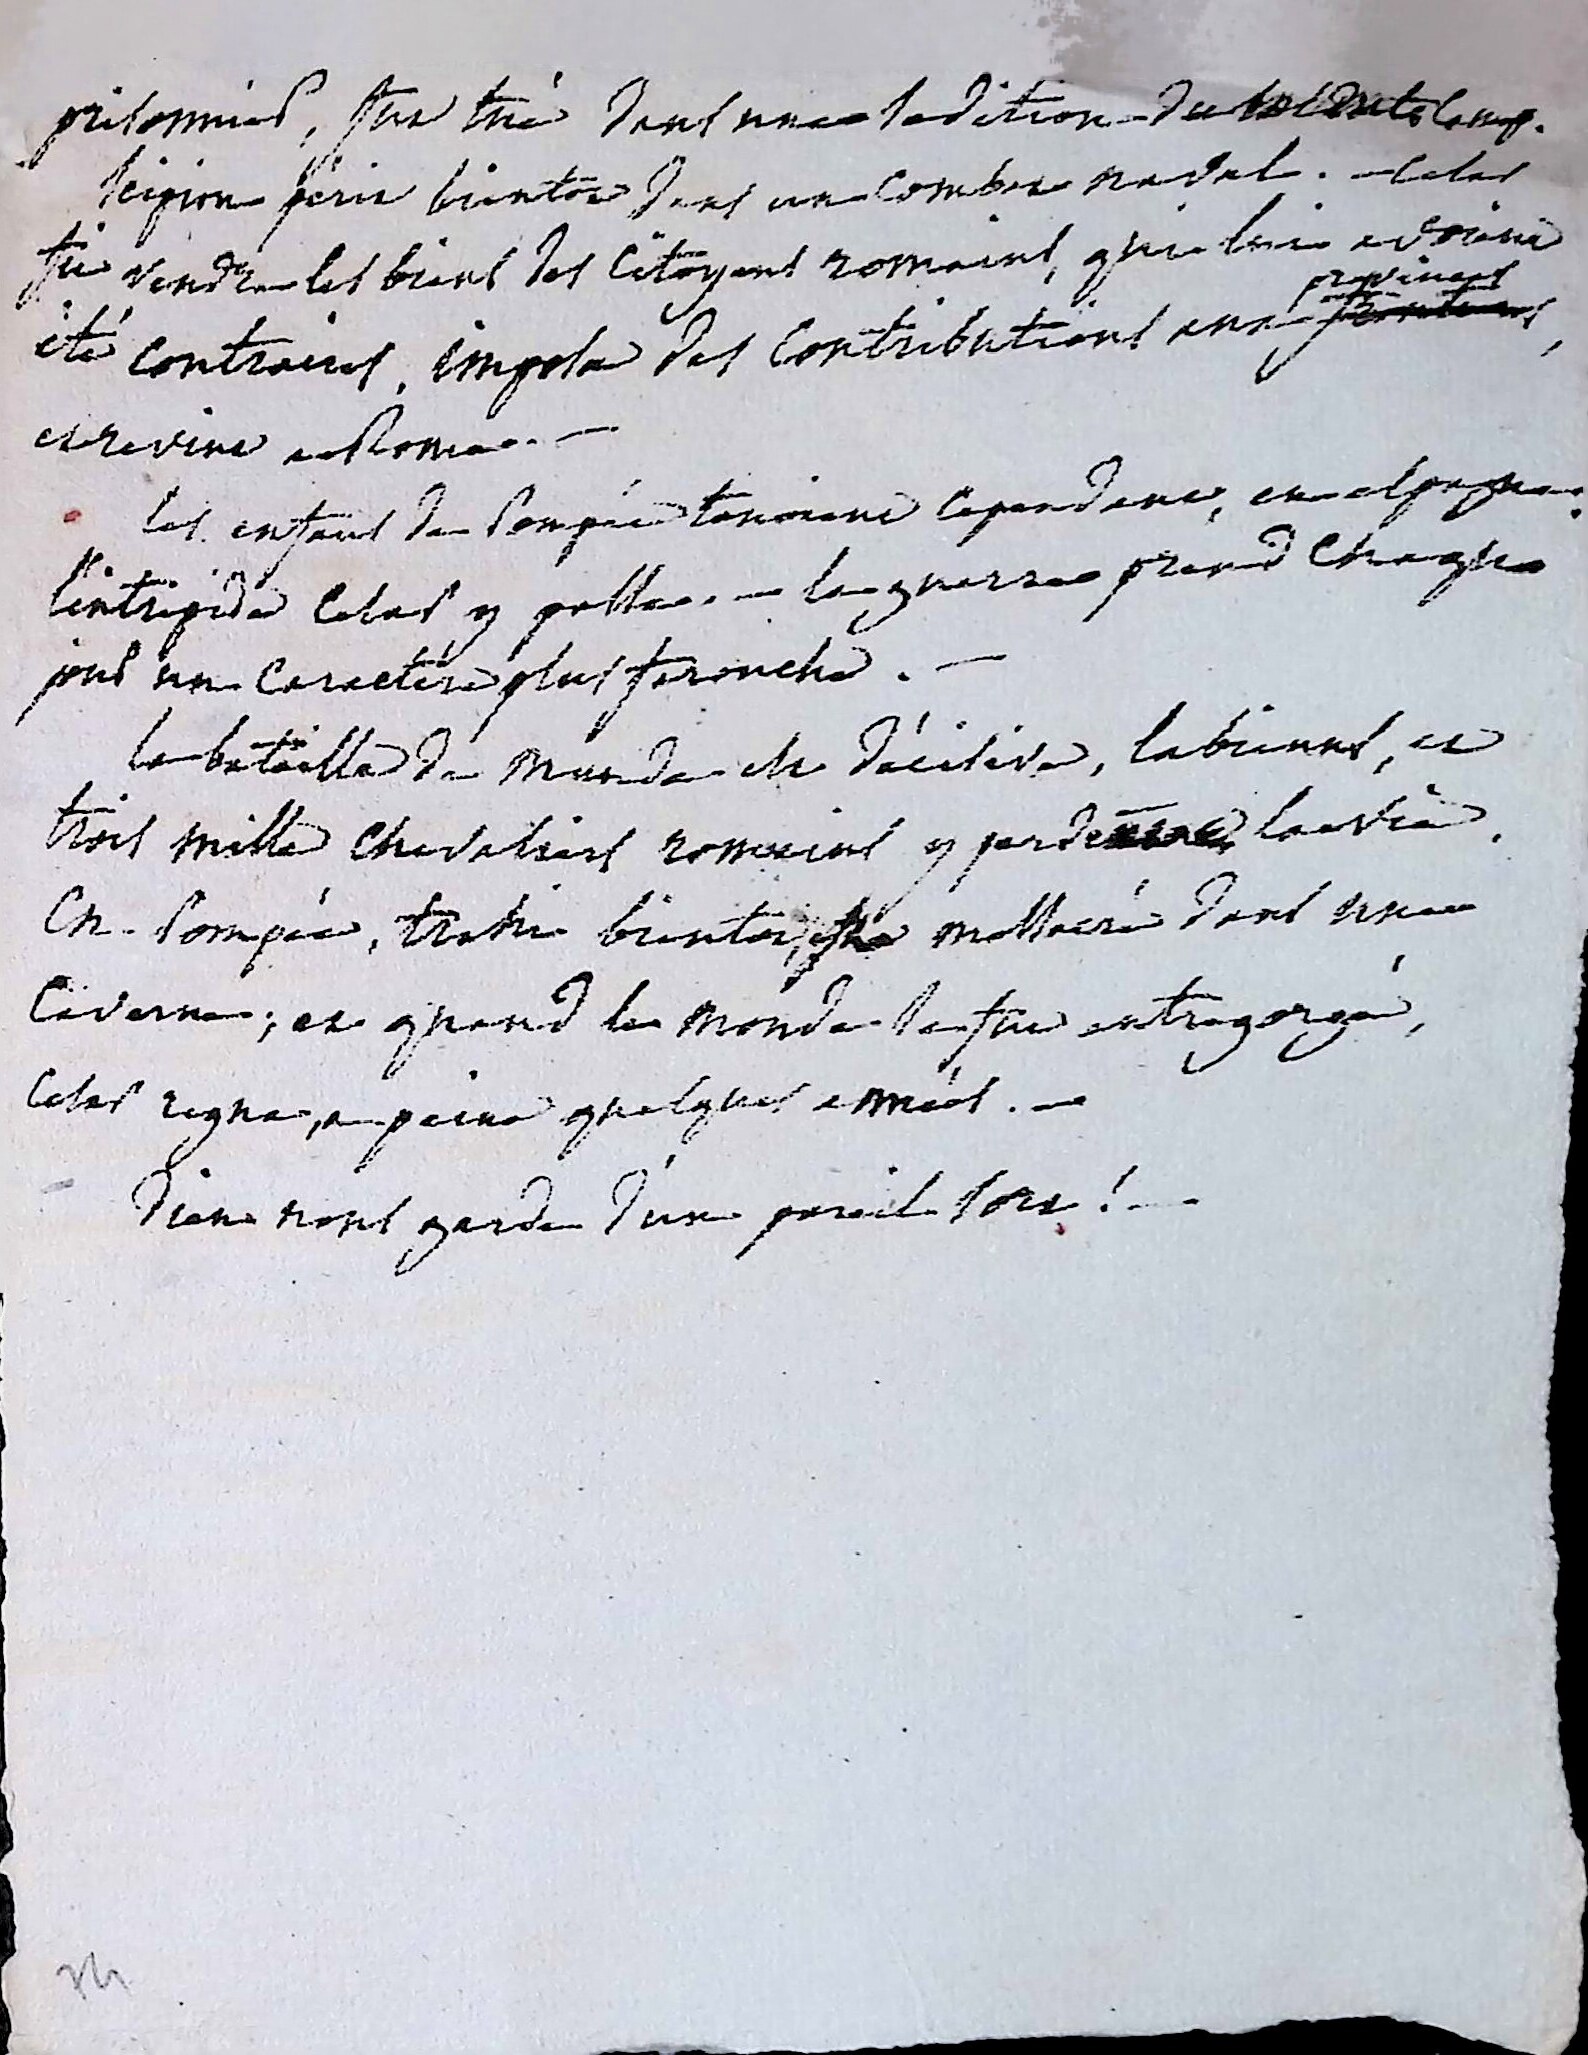 prisonnier, fut tué dans une sedition du camp.
Scipion périt bientôt dans un combat naval. — César
fit vendre les biens des citoyens romains, qui lui avoient
été contraires, imposa des contributions aux provinces,
et revint a Rome. —
les enfans de Pompée tenoient cependant, en espagne.
l'intrépide César y passe. — la guerre prend chaque
jour un caractère plus farouche. —
la bataille de Munda est décisive, labienus, et
trois mille chevaliers romains y perdent la vie.
Cn. Pompée, trahi bientôt, est massacré dans une
caverne; et quand le monde se fut entregorgé,
César regna, a peine quelques mois. —
Dieu nous garde d'un pareil sort! —